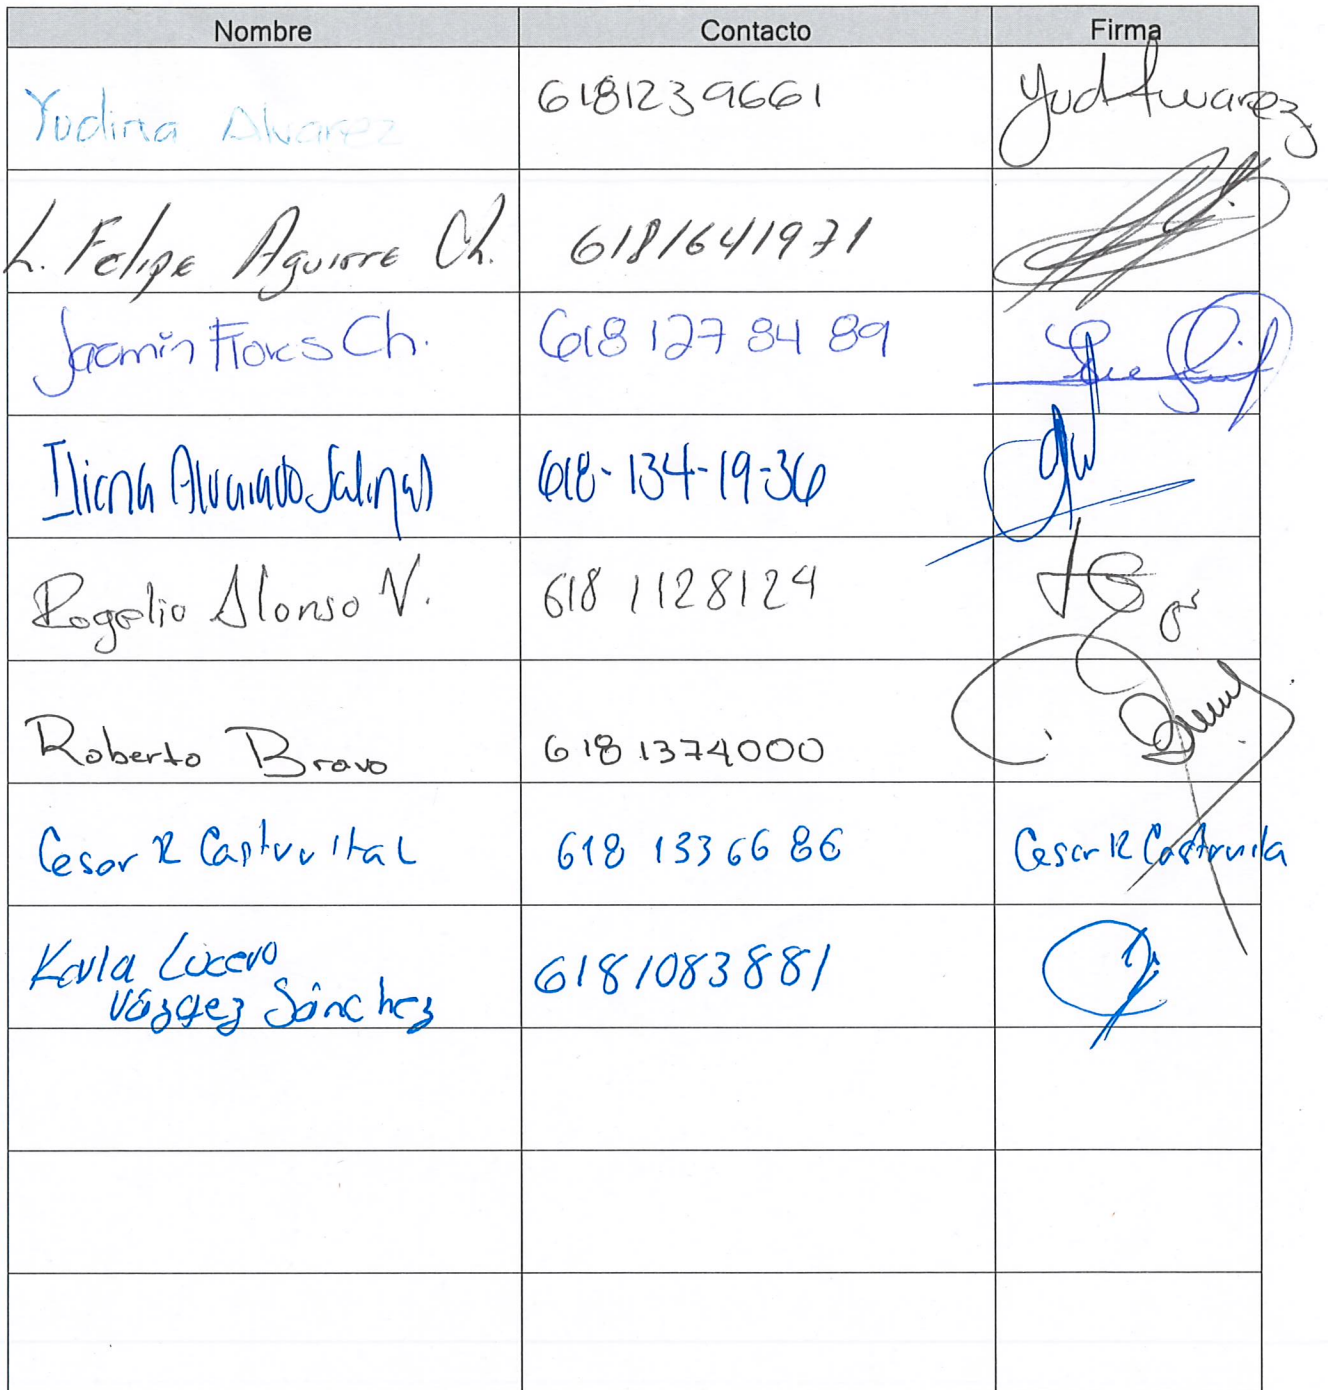 Nombre Contacto Firma
Yudina Alvarez 6181239661 Yud Alvarez
L. Felipe Aguirre Ch. 6181641971
Jazmin Flores Ch. 618 127 84 89
Iliana Alvarado Salinas 618-134-19-36
Rogelio Alonso V. 618 1128124
Roberto Bravo 618 1374000
Cesar R Castruita L 618 133 66 86 Cesar R Castruita
Karla Lucero
Vázqez Sánchez 6181083881